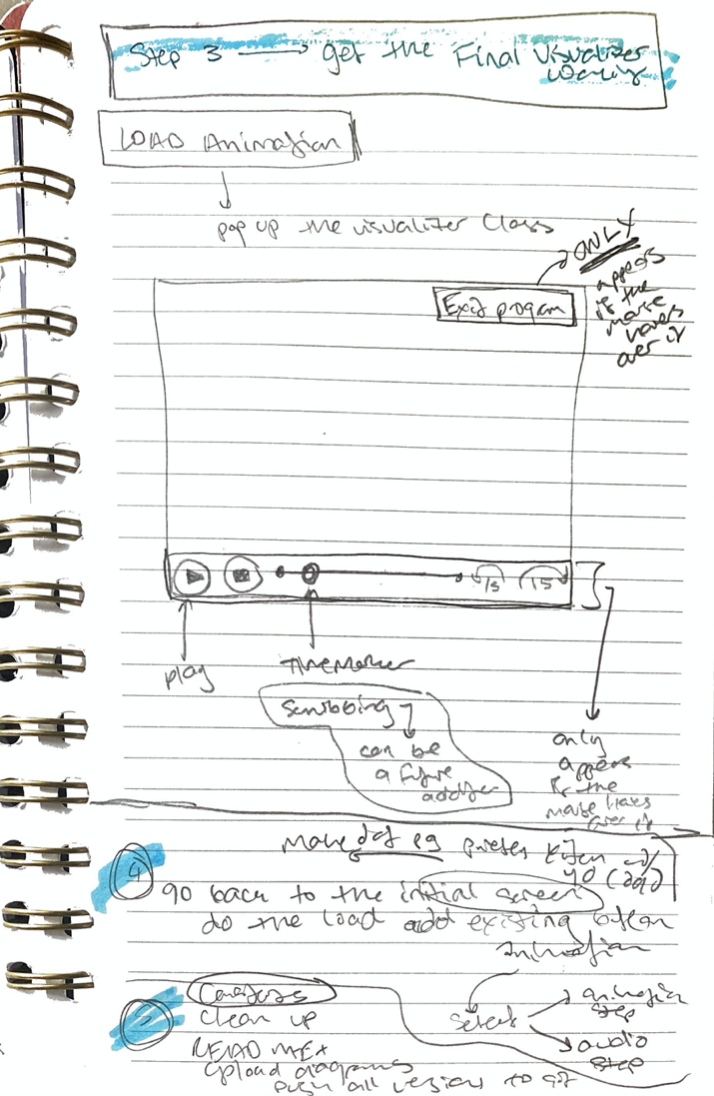 Step 3 → get the Final Visualizer
working
LOAD Animation
pop up the visualizer Class
ONLY
appears
if the
mouse
hovers
over it
Exit program
15
15
play
time marker
scrubbing
can be
a future
addition
only
appears
if the
mouse hovers
over it
Make
eg
4
go back to the initial screen
do the load add existing button
animation
select
animation step
audio step
clean up
README
upload diagrams
push all versions to git